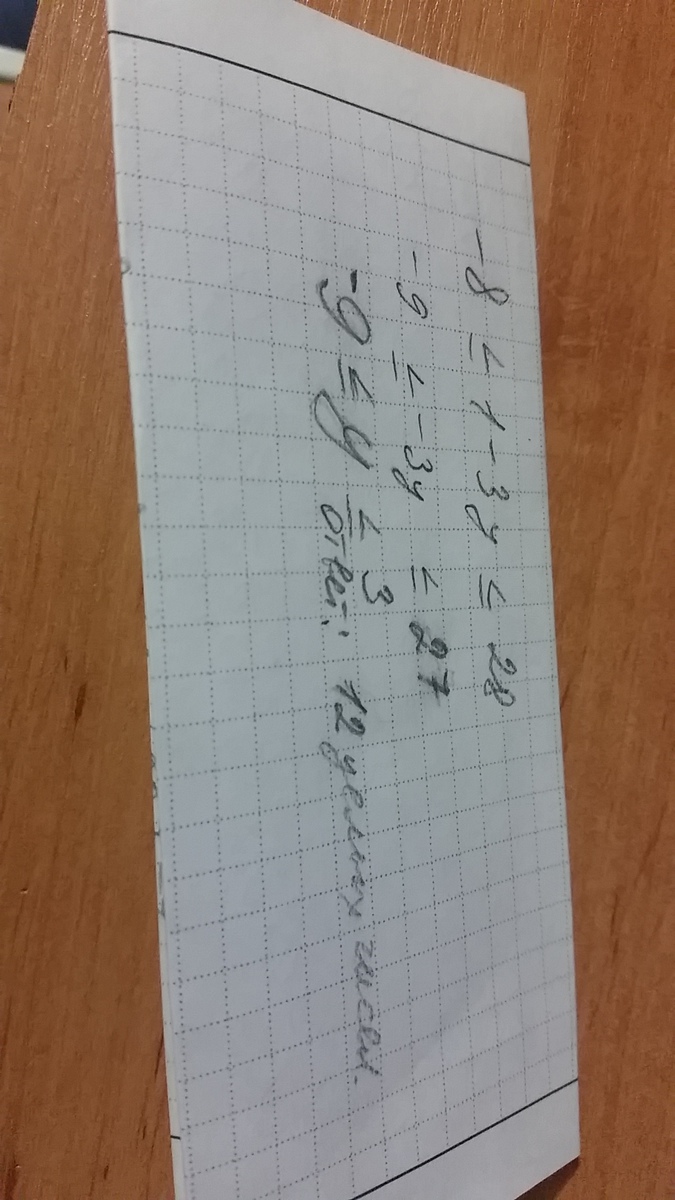 -8 ≤ 1 - 3y ≤ 28
-9 ≤ -3y ≤ 27
-9 ≤ y ≤ 3
Ответ: 12 целых чисел.